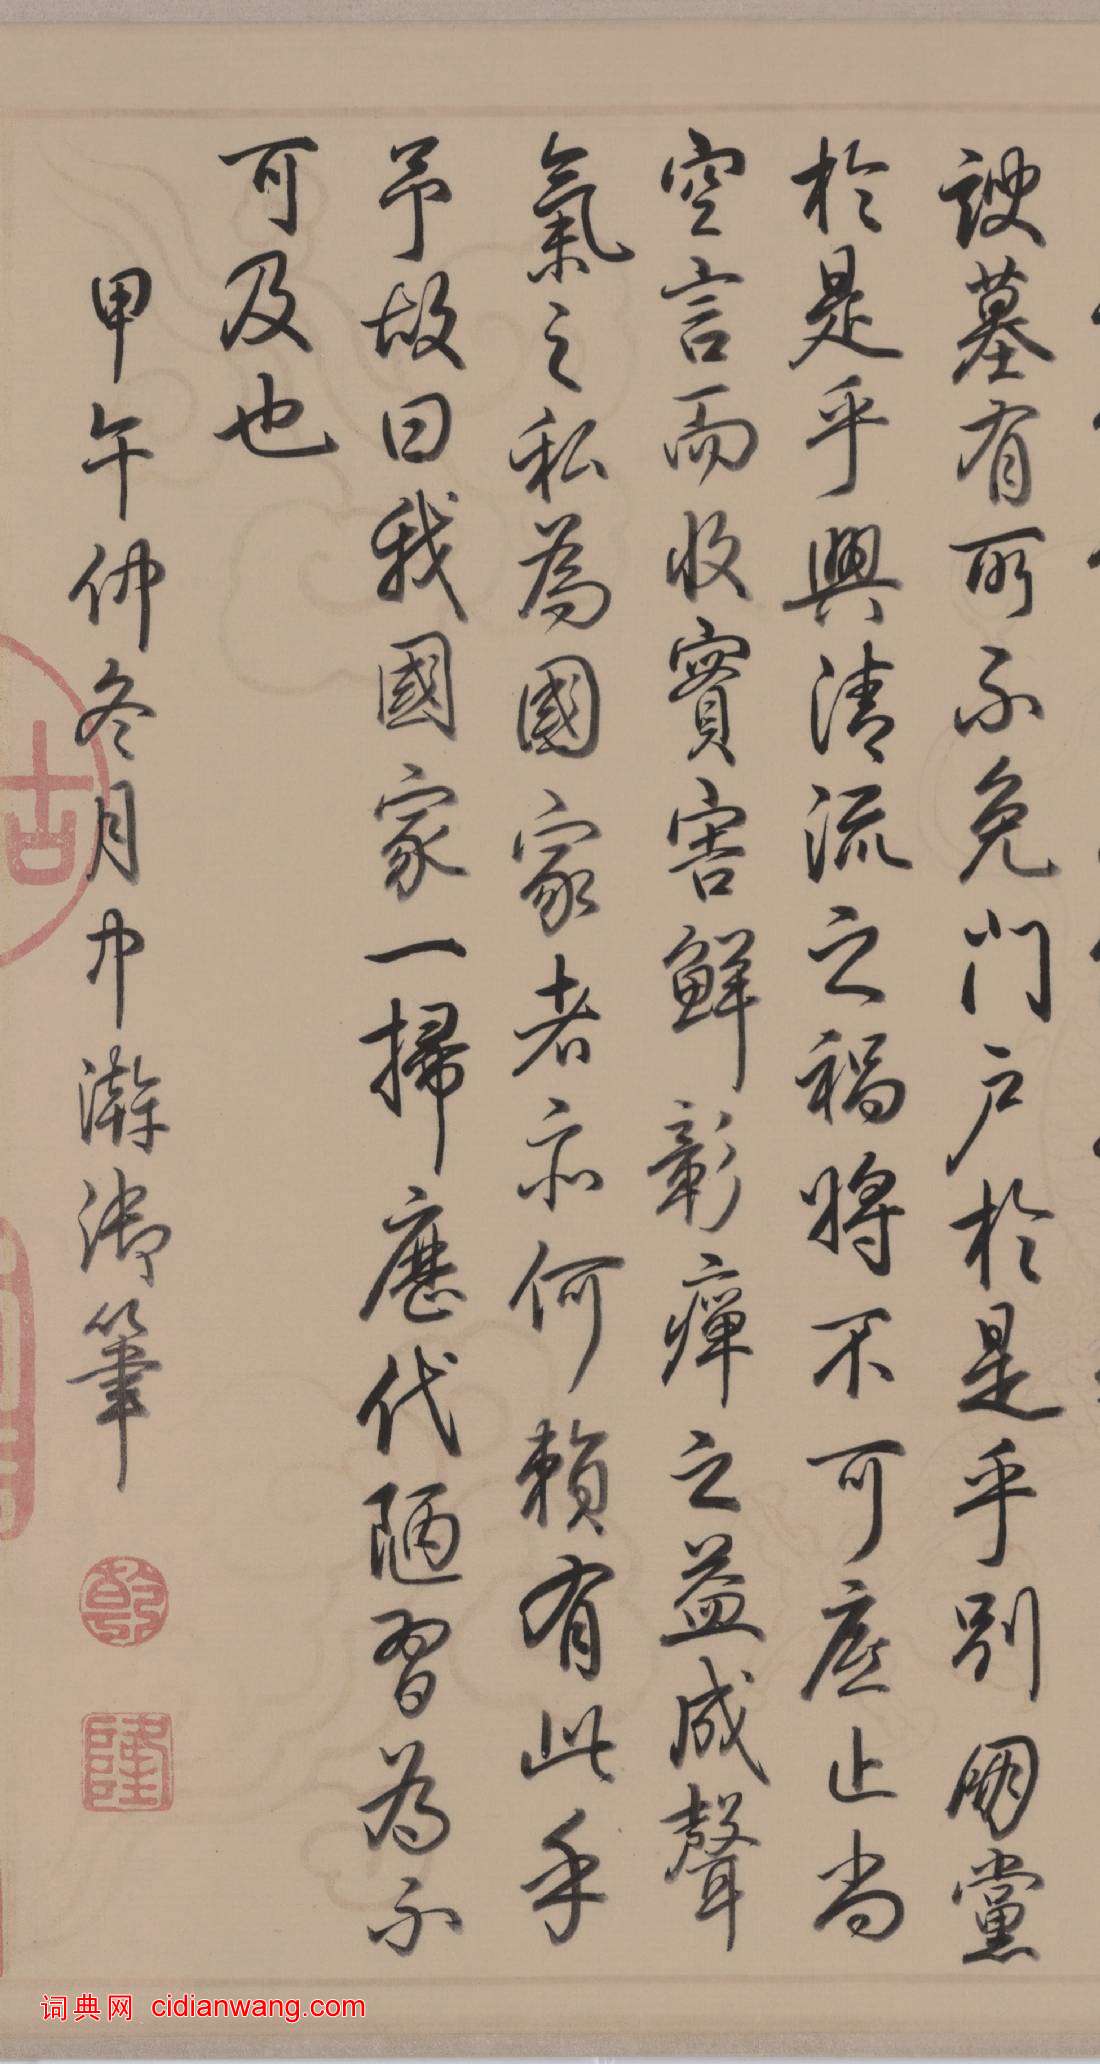 諛墓有所不免門户於是乎別朋黨
於是乎興清流之禍将不可底止尚
空言而收實害鮮彰癉之益成聲
氣之私為國家者亦何賴有此乎
予故曰我國家一掃歷代陋習為不
可及也
甲午仲冬月中澣御筆
乾
隆
古
词典网 cidianwang.com